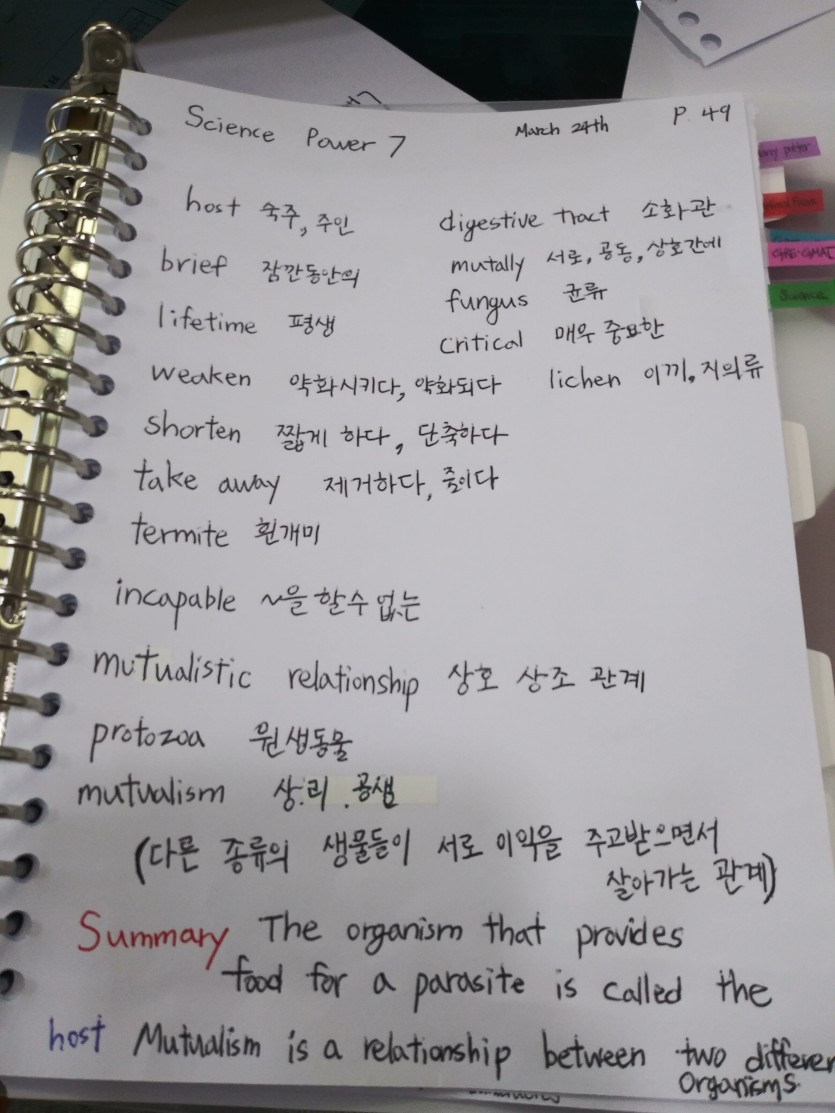 Science Power 7 March 24th P. 49
host 숙주, 주인
brief 잠깐동안의
lifetime 평생
weaken 약화시키다, 약화되다
shorten 짧게 하다, 단축하다
take away 제거하다, 줄이다
termite 흰개미
incapable ~을 할수 없는
mutualistic relationship 상호 상조 관계
protozoa 원생동물
mutualism 상리 공생
(다른 종류의 생물들이 서로 이익을 주고받으면서
살아가는 관계)
digestive tract 소화관
mutally 서로, 공동, 상호간에
fungus 균류
critical 매우 중요한
lichen 이끼, 지의류
Summary The organism that provides
food for a parasite is called the
host Mutualism is a relationship between two differen
organisms.
GRE-GMAT
Science